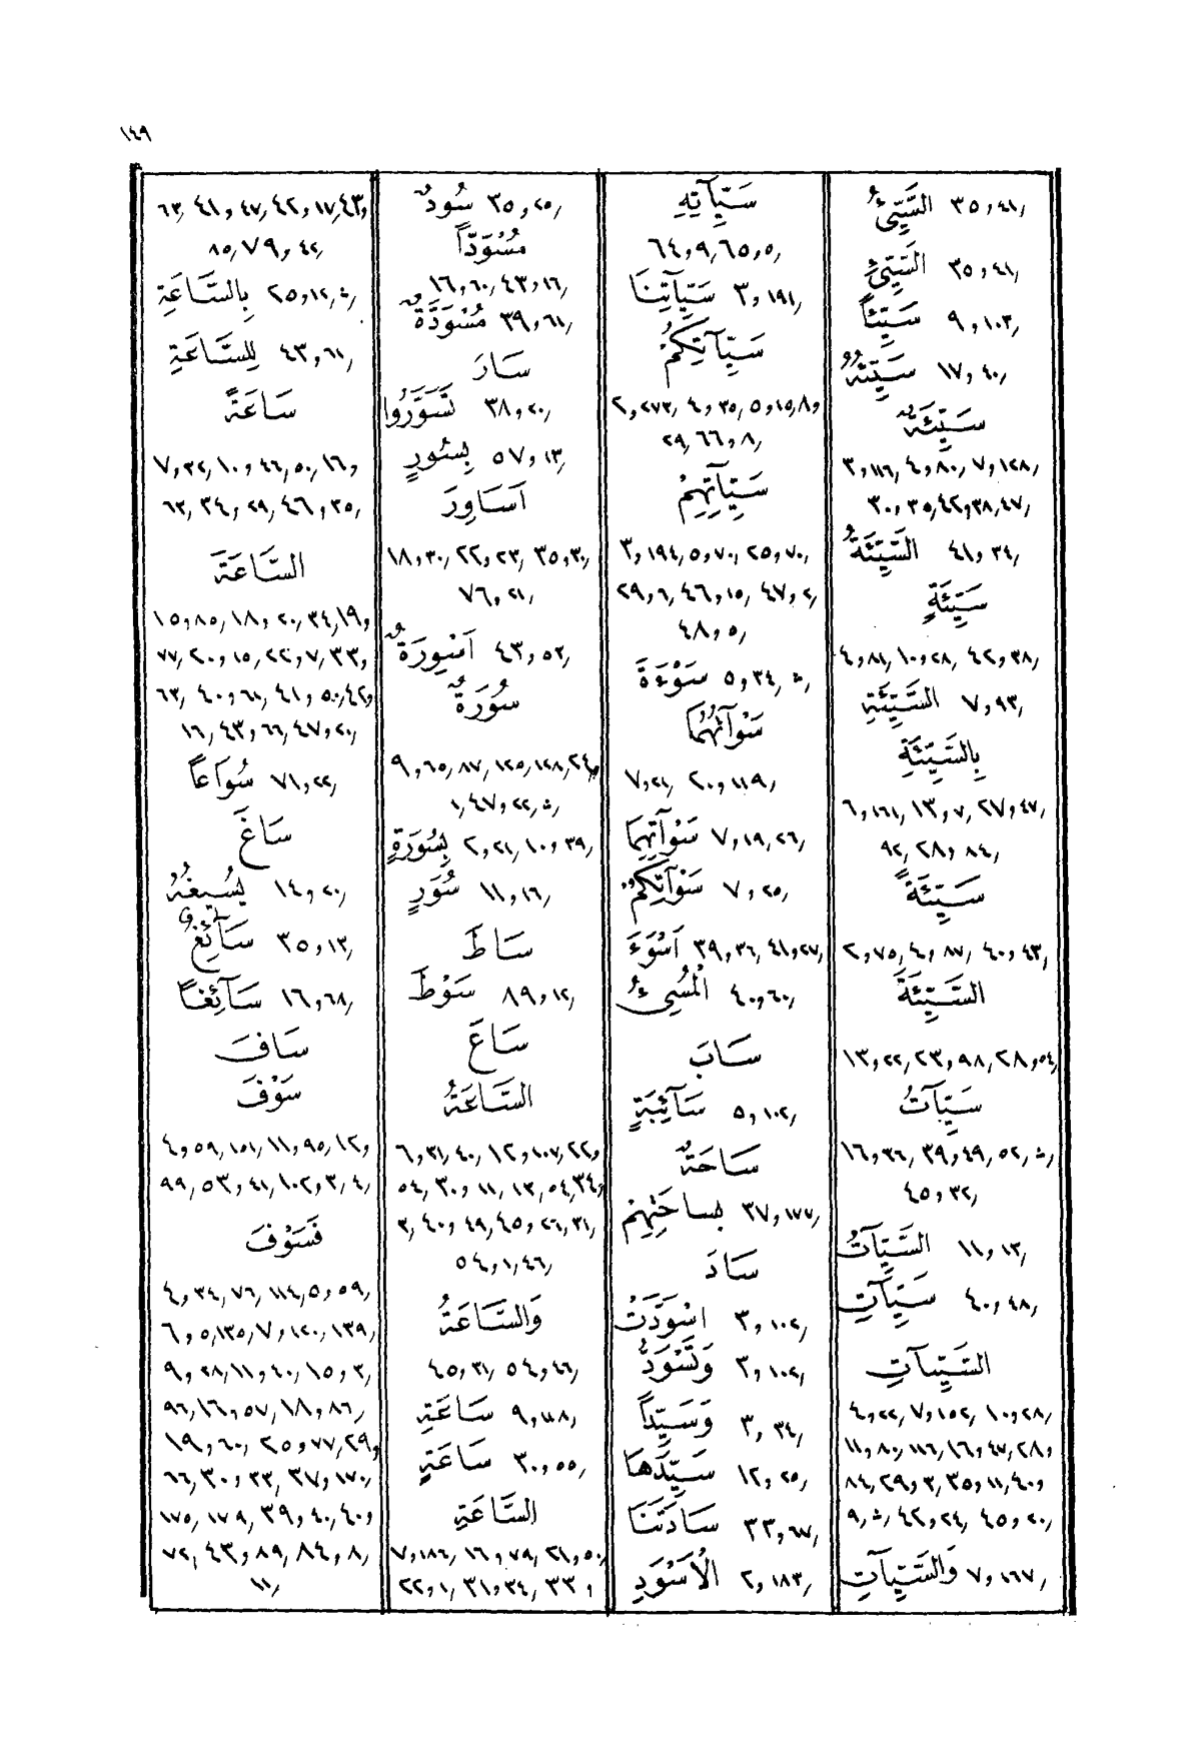 ١٤٩
السَّيِّئُ ٣٥٫٤١٫
السَّيِّئِ ٣٥٫٤١٫
سَيِّئاً ٩٫١٠٢٫
سَيِّئُهُ ١٧٫٤٠٫
سَيِّئَةٌ
٣٫١١٦٫ ٤٫٨٠٫ ٧٫١٢٨٫
٣٠٫٣٥٫٤٢٫٣٨٫٤٧٫
السَّيِّئَةُ ٤١٫٣٤٫
سَيِّئَةٍ
٤٫٨١٫ ١٠٫٢٨٫ ٤٢٫٣٨٫
السَّيِّئَةِ ٧٫٩٣٫
بِالسَّيِّئَةِ
٦٫١٦١٫ ١٣٫٧٫ ٢٧٫٤٧٫
٩٢٫ ٢٨٫٨٤٫
سَيِّئَةً
٢٫٧٥٫ ٤٫٨٧٫ ٤٠٫٤٣٫
السَّيِّئَةَ
١٣٫٢٢٫ ٢٣٫٩٨٫ ٢٨٫٥٤٫
سَيِّآتُ
١٦٫٣٦٫ ٣٩٫٤٩٫ ٥٢٫ث٫
٤٥٫٣٢٫
السَّيِّآتُ ١١٫١٢٫
سَيِّآتِ ٤٠٫٤٨٫
السَّيِّآتِ
٤٫٢٢٫ ٧٫١٥٢٫ ١٠٫٢٨٫
١١٫٨٠٫ ١١٦٫ ١٦٫٤٧٫ ٢٨٫
٨٤٫ ٢٩٫٣٫ ٣٥٫١١٫ ٤٠٫
٩٫ث٫ ٤٢٫٢٤٫ ٤٥٫٢٠٫
وَالسَّيِّآتِ ٧٫١٦٧٫
سَيِّآتِهِ
٦٤٫٩٫ ٦٥٫٥٫
سَيِّآتِنَا ٣٫١٩١٫
سَيِّآتِكُمْ
٢٫٢٧٣٫ ٤٫٣٥٫ ٥٫١٥٫ ٨٫
٢٩٫ ٦٦٫٨٫
سَيِّآتِهِمْ
٣٫١٩٤٫ ٥٫٧٠٫ ٢٥٫٧٠٫
٢٩٫٦٫ ٤٦٫١٥٫ ٤٧٫٢٫
٤٨٫٥٫
سَوْءَةَ ٥٫٣٤٫ث٫
سَوْآتُهُمَا
٧٫٢١٫ ٢٠٫١١٩٫
سَوْآتِهِمَا ٧٫١٩٫ ٢٦٫
سَوْآتِكُمْ ٧٫٢٥٫
اَسْوَءَ ٣٩٫٣٦٫ ٤١٫٢٧٫
الْمُسِىءُ ٤٠٫٦٠٫
سَابَ
سَآئِبَةٍ ٥٫١٠٢٫
سَاحَةٌ
بِساحَتِهِمْ ٣٧٫١٧٧٫
سَادَ
اسْوَدَّتْ ٣٫١٠٢٫
وَتَسْوَدُّ ٣٫١٠٢٫
وَسَيِّداً ٣٫٣٤٫
سَيِّدَهَا ١٢٫٢٥٫
سَادَتَنَا ٣٣٫٦٧٫
الْاَسْوَدِ ٢٫١٨٣٫
سُودٌ ٣٥٫٢٥٫
مُسْوَدّاً
١٦٫٦٠٫ ٤٣٫١٦٫
مُسْوَدَّةٌ ٣٩٫٦١٫
سَارَ
تَسَوَّرُوا ٣٨٫٢٠٫
بِسُورٍ ٥٧٫١٣٫
اَسَاوِرَ
١٨٫٣٠٫ ٢٢٫٢٣٫ ٣٥٫٣٠٫
٧٦٫٢١٫
اَسْوِرَةٌ ٤٣٫٥٢٫
سُورَةٌ
٩٫٦٥٫ ٨٧٫ ١٢٥٫ ١٢٨٫ ٢٤٫
١٫ ٤٧٫٢٢٫ث٫
بِسُورَةٍ ٢٫٢١٫ ١٠٫٣٩٫
سُوَرٍ ١١٫١٦٫
سَاطَ
سَوْطَ ٨٩٫١٢٫
سَاعَ
السَّاعَةُ
٦٫٣١٫ ٤٠٫ ١٢٫١٠٧٫ ٢٢٫
٥٤٫ ٣٠٫١١٫ ١٣٫ ٥٤٫ ٣٤٫
٣٫ ٤٠٫٤٩٫ ٤٥٫٢٦٫ ٣١٫
٥٤٫١٫ ٤٦٫
وَالسَّاعَةُ
٤٥٫٣١٫ ٥٤٫٤٦٫
سَاعَةِ ٩٫١١٨٫
سَاعَةٍ ٣٠٫٥٥٫
السَّاعَةِ
٧٫١٨٦٫ ١٦٫٧٩٫ ٢١٫٥٠٫
٢٢٫١٫ ٣١٫٣٤٫ ٣٣٫
٦٣٫ ٤١٫٤٧٫ ٤٢٫١٧٫ ٤٣٫
٨٥٫ ٧٩٫٤٢٫
بِالسَّاعَةِ ٢٥٫١٢٫ث٫
لِلسَّاعَةِ ٤٣٫٦١٫
سَاعَةً
٧٫٣٢٫ ١٠٫٤٦٫ ٥٠٫ ١٦٫
٦٢٫ ٣٤٫٢٩٫ ٤٦٫٣٥٫
السَّاعَةَ
١٥٫٨٥٫ ١٨٫٢٠٫ ٣٤٫ ١٩٫
٧٧٫ ٢٠٫١٥٫ ٢٢٫٧٫ ٣٣٫
٦٣٫ ٤٠٫٦١٫ ٤١٫٥٠٫ ٤٢٫
١٦٫ ٤٣٫٦٦٫ ٤٧٫٢٠٫
سُوَاعاً ٧١٫٢٢٫
سَاغَ
يُسِيغُهُ ١٤٫٢٠٫
سَآئِغٌ ٣٥٫١٣٫
سَآئِغاً ١٦٫٦٨٫
سَافَ
سَوْفَ
٤٫٥٩٫ ١٥١٫ ١١٫٩٥٫ ١٢٫
٩٩٫ ٥٣٫٤١٫ ١٠٢٫٣٫ ٤٫
فَسَوْفَ
٤٫٣٤٫ ٧٦٫ ١١٤٫ ٥٫٥٩٫
٦٫٥٫ ١٣٥٫ ٧٫١٢٠٫ ١٣٩٫
٩٫٢٨٫ ١١٫٤٠٫ ١٥٫٣٫
٩٦٫ ١٦٫٥٧٫ ١٨٫٨٦٫
١٩٫٦٠٫ ٢٥٫٧٧٫ ٢٩٫
٦٦٫ ٣٠٫٣٣٫ ٣٧٫١٧٠٫
١٧٥٫ ١٧٩٫ ٣٩٫٤٠٫ ٤٠٫
٧٢٫ ٤٣٫٨٩٫ ٨٤٫٨٫
١١٫